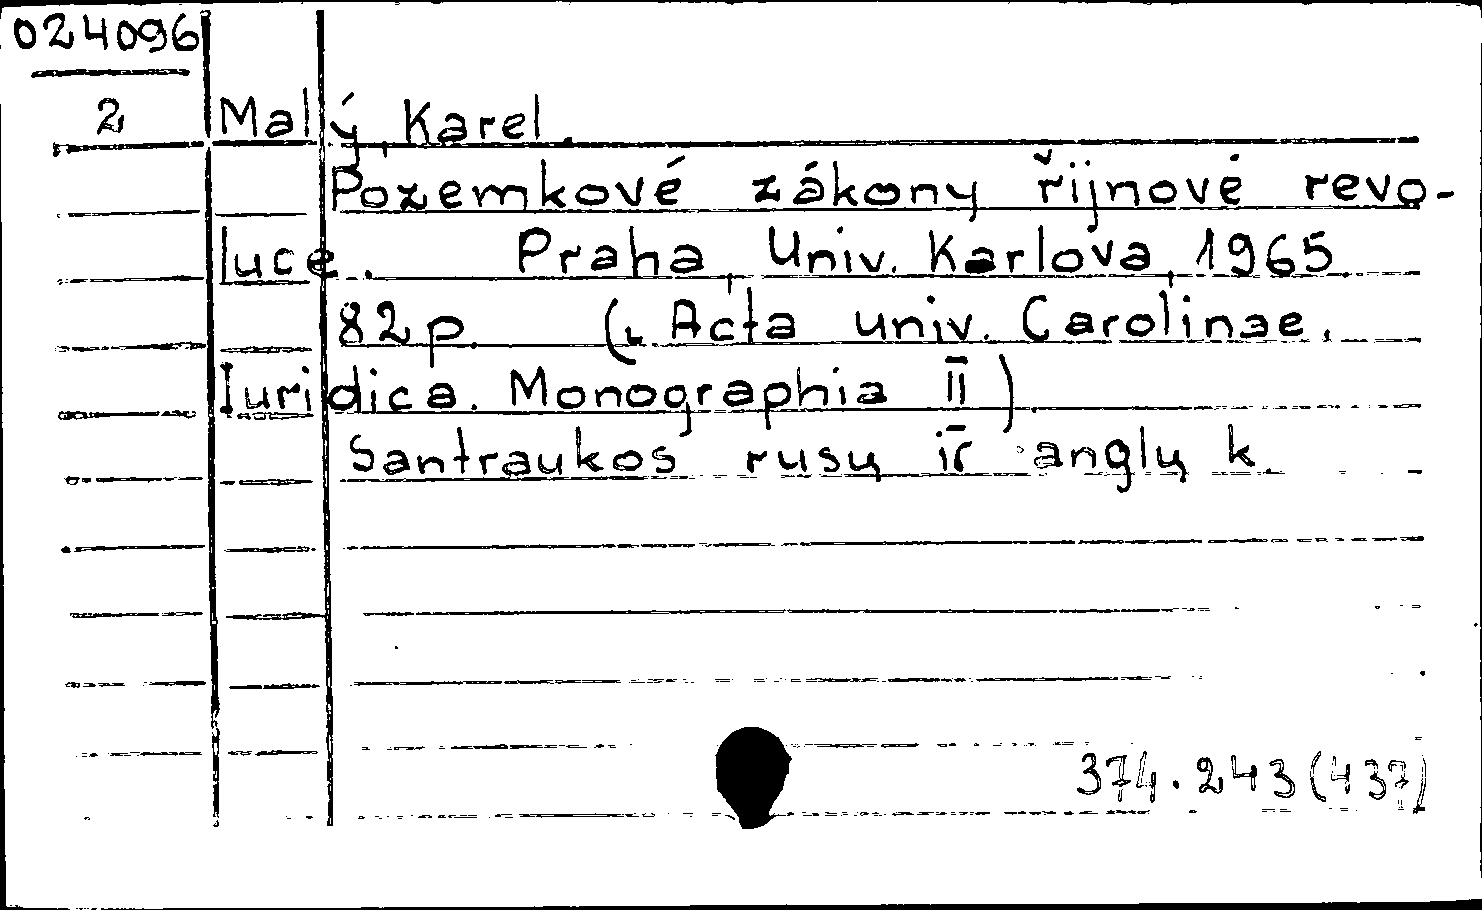 024096
2 Malý, Karel.
Pozemkové zákony řijnové revo-
luce. Praha, Univ. Karlova, 1965.
82 p. (Acta univ. Carolinae.
Iuridica. Monographia II)
Santraukos rusų ir anglų k.
374.243(437)